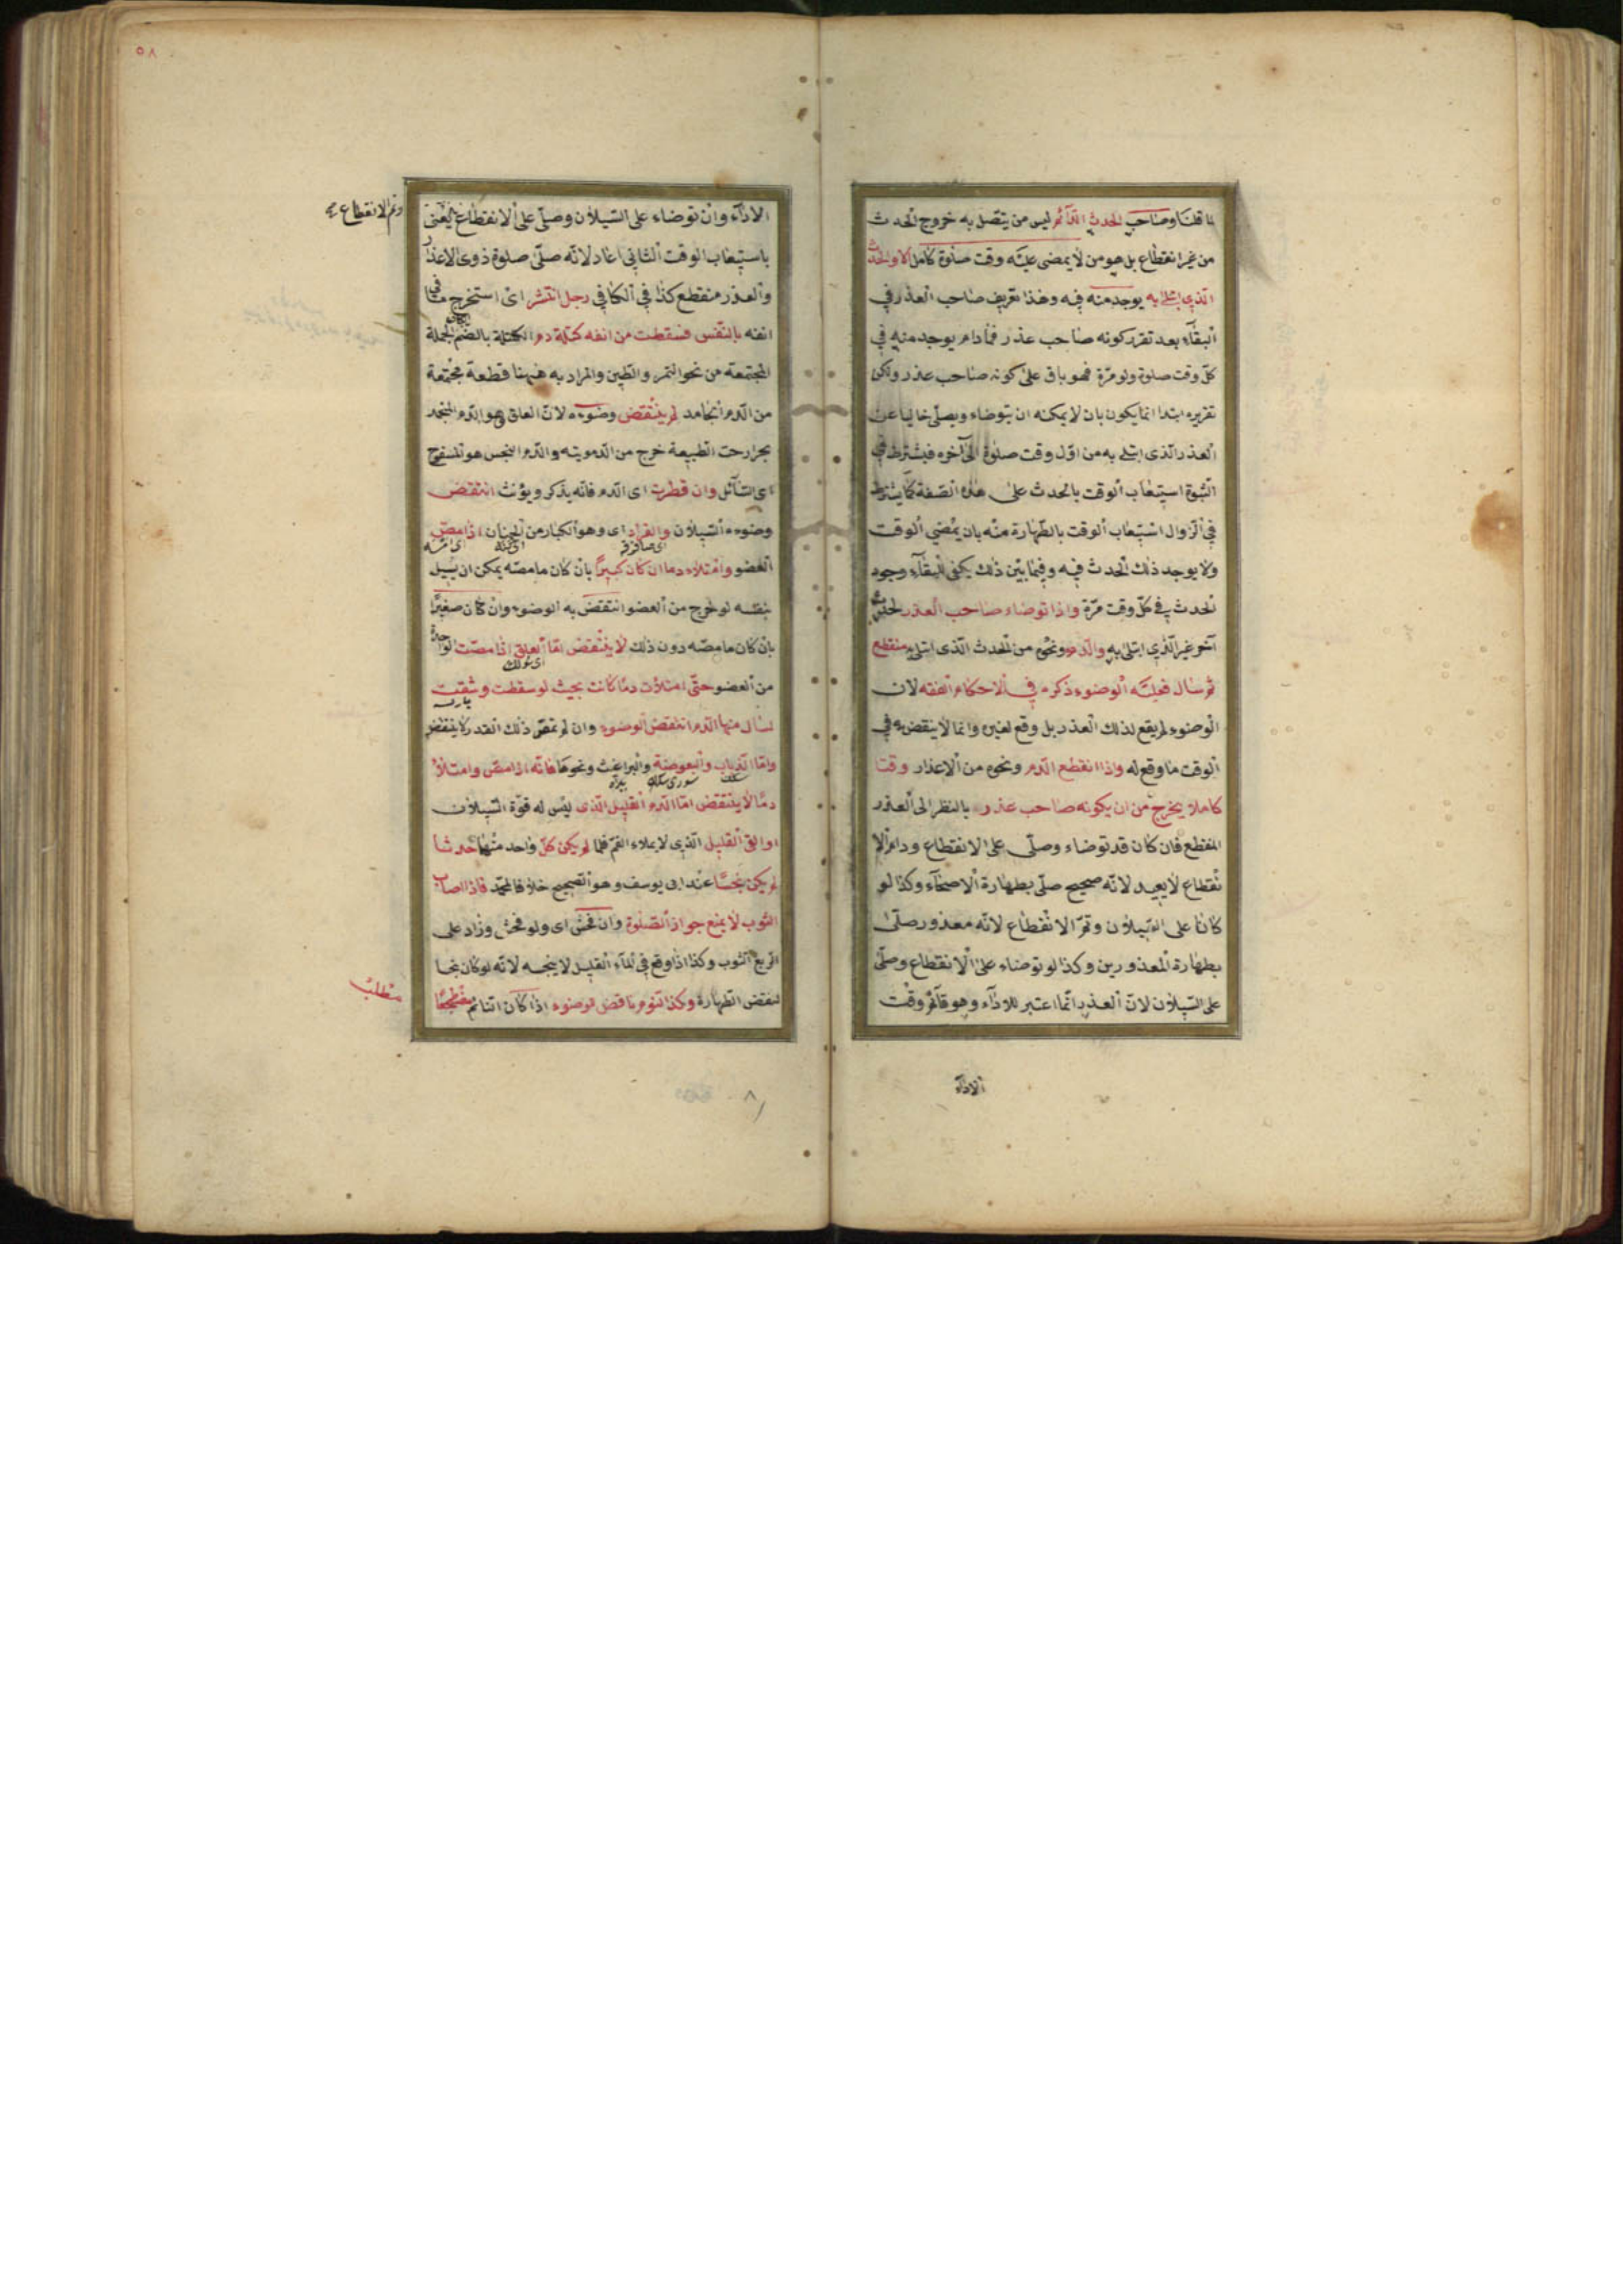 لما قلنا وصاحب الحدث الدآئم ليس من يتصل به خروج الحدث
من غير انقطاع بل هو من لا يمضى عليه وقت صلوة كامل الا والحدث
الذي ابتلى به يوجد منه فيه وهذا تعريف صاحب العذر في
البقاء بعد تقرر كونه صاحب عذر فما دام يوجد منه في
كل وقت صلوة ولو مرة فهو باق على كونه صاحب عذر ولكن
تقريره ابتدا انما يكون بان لا يمكنه ان يتوضاء ويصلى خاليا عن
العذر الذى ابتلى به من اول وقت صلوة الى آخره فيشترط في
الثبوة استيعاب الوقت بالحدث على هذه الصفة كما يشترط
في الزوال استيعاب الوقت بالطهارة منه بان يمضي الوقت
ولا يوجد ذلك الحدث فيه وفيما بين ذلك يكفى للبقآء وجود
الحدث في كل وقت مرة واذا توضاء صاحب العذر لحدث
آخر غير الذي ابتلى به والدم ونحوه من الحدث الذى ابتلى به منقطع
ثم سال فعليه الوضوء ذكره في الاحكام الفقه لان
الوضوء لم يقع لذلك العذر بل وقع لغيره وانما لا ينقض به في
الوقت ما وقع له واذا انقطع الدم ونحوه من الاعذار وقتا
كاملا يخرج من ان يكونه صاحب عذر بالنظر الى العذر
المنقطع فان كان قد توضاء وصلى على الانقطاع ودام الا
نقطاع لا يعيد لانه صحيح صلى بطهارة الاصحآء وكذا لو
كانا على السيلان وتم الانقطاع لانه معذور صلى
بطهارة المعذورين وكذا لو توضاء على الانقطاع وصلى
على السيلان لان العذر انما اعتبر للادآء وهو قآئم وقت
الادآء
٥٨
الادآء وان توضاء على السيلان وصلى على الانقطاع يعنى
وتم الانقطاع
باستيعاب الوقت الثاني اعاد لانه صلى صلوة ذوى الاعذار
والعذر منقطع كذا في الكافي رجل انتثر اى استخرج ما في
انفه بالنفس فسقطت من انفه كتلة دم الكتلة بالضم الجملة
المجتمعة من نحو التمر والطين والمراد به ههنا قطعة مجتمعة
من الدم الجامد لم ينتقض وضوءه لان العلق هو الدم المنجمد
بحرارت الطبيعة خرج من الدموية والدم النجس هو المسفوح
اى السآئل وان قطرت اى الدم فانه يذكر ويؤنث انتقض
وضوءه السيلان والقراد اى وهو الكبار من الحمنان اذا مص
العضو وامتلاء دما ان كان كبيرا بان كان ما مصه يمكن ان يسيل
بنفسه لو خرج من العضو انتقض به الوضوء وان كان صغيرا
بان كان ما مصه دون ذلك لا ينتقض اما العلق اذا مصت
من العضو حتى امتلات دما كانت بحيث لو سقطت وشقت
لسال منها الدم انتقض الوضوء وان لم تمص ذلك القدر لا ينتقض
واما الذباب والبعوضة والبراغث ونحوها فانه اذا مص وامتلاء
دما لا ينتقض اما الدم القليل الذى ليس له قوة السيلان
او القئ القليل الذى لا يملاء الفم فلما لم يكن كل واحد منهما حدثا
لم يكن نجسا عند ابى يوسف وهو الصحيح خلافا لمحمد فاذا اصاب
الثوب لا يمنع جواز الصلوة وان فحش اى ولو فحش وزاد على
الربع الثوب وكذا اذا وقع في المآء القليل لا ينجسه لانه لو كان نجسا
لنقض الطهارة وكذا النوم ناقض للوضوء اذا كان النائم مضطجعا
مطلب